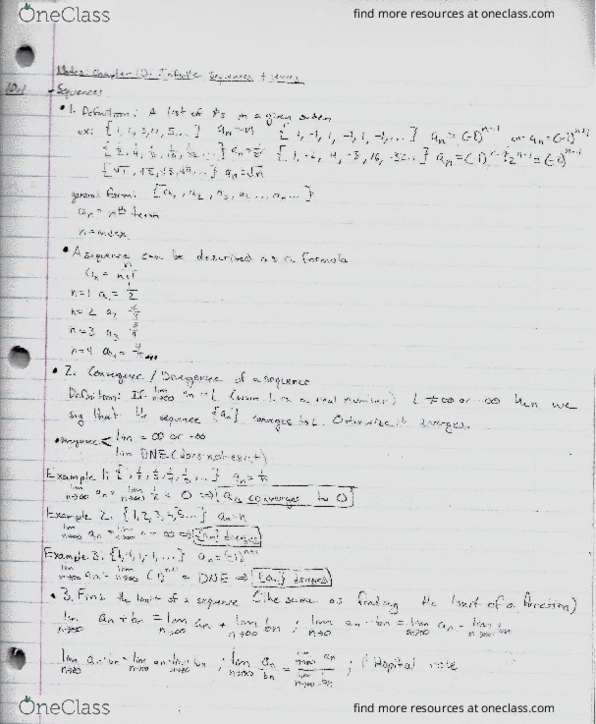 OneClass
find more resources at oneclass.com
Notes: Chapter 10: Infinite Sequences + Series
10.1 - Sequences
• 1. Definition: A list of #'s in a given order
ex: {1, 2, 3, 4, 5...} an=n {1, -1, 1, -1, 1, -1, ...} an = (-1)^n-1 or an=(-1)^n+1
an=√n
general form: {a1, a2, a3, a4, ..., an ...}
an = nth term
n=index
• A sequence can be described as a formula
an = n/n+1
n=1 a1 = 1/2
n=2 a2
n=3 a3
n=4 a4 =
• 2. Convergence / Divergence of a sequence
Definition: If lim n→∞ an = L (where L is a real number) L ≠ ∞ or -∞ then we
say that the sequence {an} converges to L. Otherwise it diverges.
• divergence < lim = ∞ or -∞
lim DNE (does not exist)
Example 1: an = 1/n
lim n→∞ an = lim n→∞ 1/n = 0 ⇒ an converges to 0
Example 2: {1, 2, 3, 4, 5...} an=n
lim n→∞ an = lim n→∞ n = ∞ ⇒ {an} diverges
Example 3: {1, -1, 1, -1, ...} an = (-1)^n+1
lim n→∞ an = lim n→∞ (-1)^n+1 = DNE ⇒ {an} diverges
• 3. Find the limit of a sequence (the same as finding the limit of a function)
lim n→∞ an + bn = lim n→∞ an + lim n→∞ bn ; lim n→∞ an - bn = lim n→∞ an - lim n→∞ bn
lim n→∞ an · bn = lim n→∞ an · lim n→∞ bn ; lim n→∞ an/bn = lim n→∞ an / lim n→∞ bn ; l'Hopital rule
OneClass
find more resources at oneclass.com